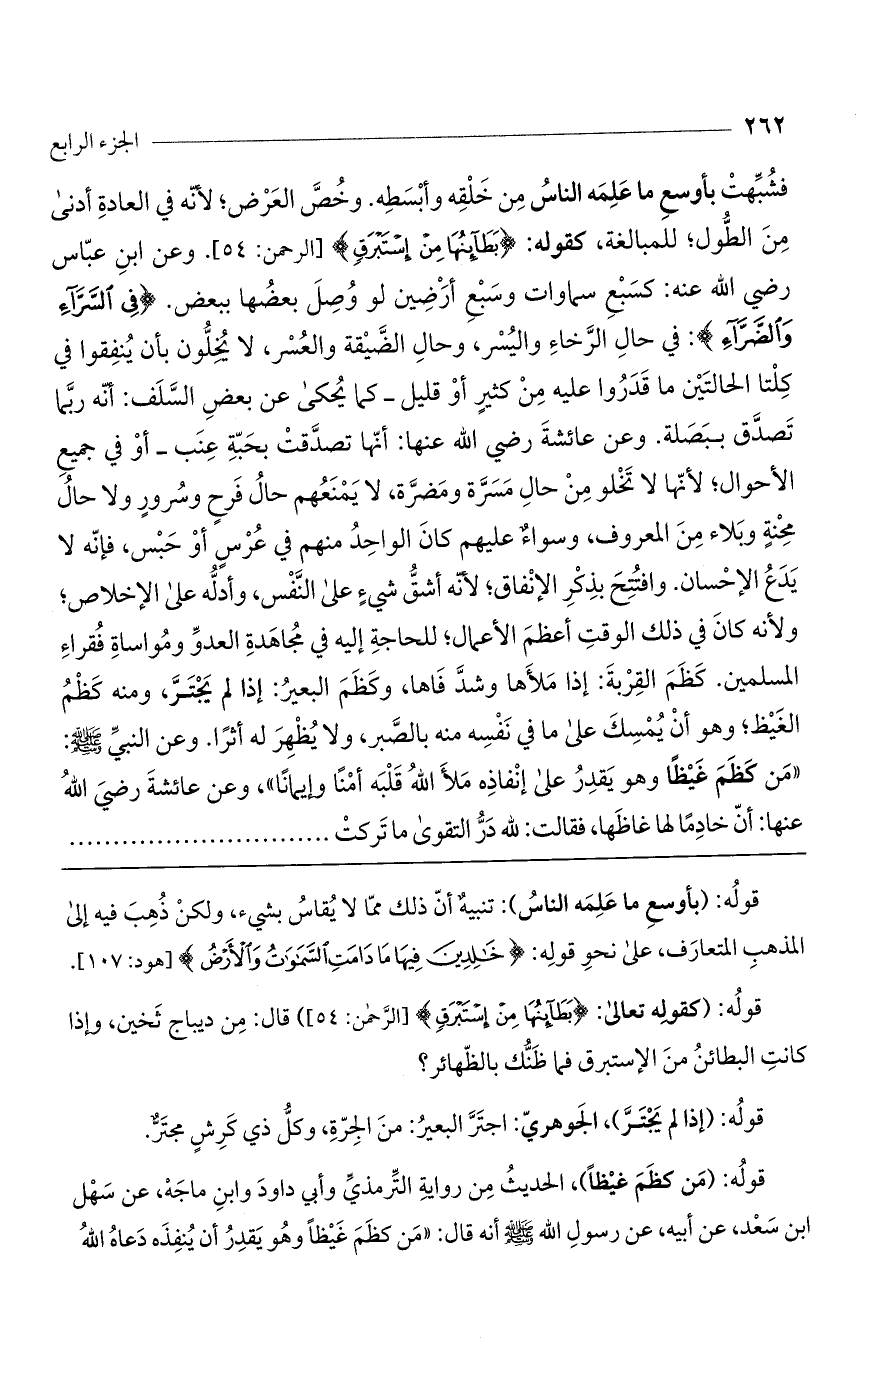 ٢٦٢ الجزء الرابع
فشُبِّهتْ بأوسعِ ما عَلِمَه الناسُ مِن خَلْقِه وأبْسَطِه. وخُصَّ العَرْض؛ لأنّه في العادةِ أدنىٰ
مِنَ الطُّول؛ للمبالغة، كقوله: ﴿بَطَآئِنُهَا مِنْ إِسْتَبْرَقٍ﴾ [الرحمن: ٥٤]. وعن ابنِ عبّاس
رضي الله عنه: كسَبْعِ سماوات وسَبْعِ أرْضِين لو وُصِلَ بعضُها ببعض. ﴿فِي ٱلسَّرَّآءِ
وَٱلضَّرَّآءِ﴾: في حالِ الرَّخاءِ واليُسْر، وحالِ الضَّيْقة والعُسْر، لا يُخِلُّون بأن يُنفِقوا في
كِلْتا الحالتَيْن ما قَدَرُوا عليه مِنْ كثيرٍ أوْ قليل ـ كما يُحكىٰ عن بعضِ السَّلَف: أنّه ربَّما
تَصدَّق ببَصَلة. وعن عائشةَ رضي الله عنها: أنّها تصدَّقتْ بحَبّةِ عِنَب ـ أوْ في جميعِ
الأحوال؛ لأنّها لا تَخْلو مِنْ حالِ مَسَرَّة ومَضرَّة، لا يَمْنَعُهم حالُ فَرحٍ وسُرورٍ ولا حالُ
مِحْنةٍ وبَلاء مِنَ المعروف، وسواءٌ عليهم كانَ الواحِدُ منهم في عُرْسٍ أوْ حَبْس، فإنّه لا
يَدَعُ الإحْسان. وافتُتِحَ بذِكْرِ الإنْفاق؛ لأنّه أشقُّ شيءٍ علىٰ النَّفْس، وأدلُّه علىٰ الإخلاص؛
ولأنه كانَ في ذلك الوقتِ أعظمَ الأعمال؛ للحاجةِ إليه في مُجاهَدةِ العدوِّ ومُواساةِ فُقراءِ
المسلمين. كَظَمَ القِرْبةَ: إذا مَلأَها وشدَّ فَاها، وكَظَمَ البعيرُ: إذا لم يَجْتَـرَّ، ومنه كَظْمُ
الغَيْظ؛ وهو أنْ يُمْسِكَ علىٰ ما في نَفْسِه منه بالصَّبر، ولا يُظْهِرَ له أثرًا. وعن النبيِّ ﷺ:
«مَن كَظَمَ غَيْظًا وهو يَقدِرُ علىٰ إنْفاذِه مَلأَ اللهُ قَلْبَه أمْنًا وإيمانًا»، وعن عائشةَ رضيَ اللهُ
عنها: أنّ خادِمًا لها غاظَها، فقالت: لله دَرُّ التقوىٰ ما تَركتْ ..............................
قولُه: (بأوسعِ ما عَلِمَه الناسُ): تنبيهٌ أنّ ذلك ممّا لا يُقاسُ بشيء، ولكنْ ذُهِبَ فيه إلىٰ
المذهبِ المتعارَف، علىٰ نحوِ قولِه: ﴿خَٰلِدِينَ فِيهَا مَا دَامَتِ ٱلسَّمَٰوَٰتُ وَٱلْأَرْضُ﴾ [هود: ١٠٧].
قولُه: (كقولِه تعالىٰ: ﴿بَطَآئِنُهَا مِنْ إِسْتَبْرَقٍ﴾ [الرَّحمٰن: ٥٤]) قال: مِن ديباج ثَخين، وإذا
كانتِ البطائنُ منَ الإستبرق فما ظَنُّك بالظّهائر؟
قولُه: (إذا لم يَجْتَـرَّ)، الجَوهريّ: اجترَّ البعيرُ: منَ الجِرّةِ، وكلُّ ذي كَرِشٍ مجترٌّ.
قولُه: (مَن كظَمَ غيْظاً)، الحديثُ مِن روايةِ التِّرمذيِّ وأبي داودَ وابنِ ماجَهْ، عن سَهْل
ابن سَعْد، عن أبيه، عن رسولِ الله ﷺ أنه قال: «مَن كظَمَ غَيْظاً وهُو يَقدِرُ أن يُنفِذَه دَعاهُ اللهُ